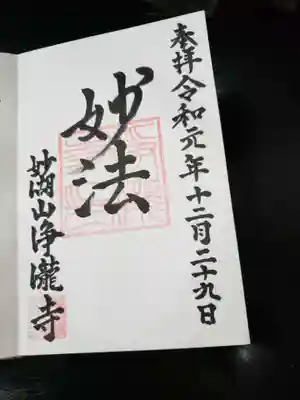 奉拝令和元年十二月二十九日
妙法
妙湖山浄瀧寺